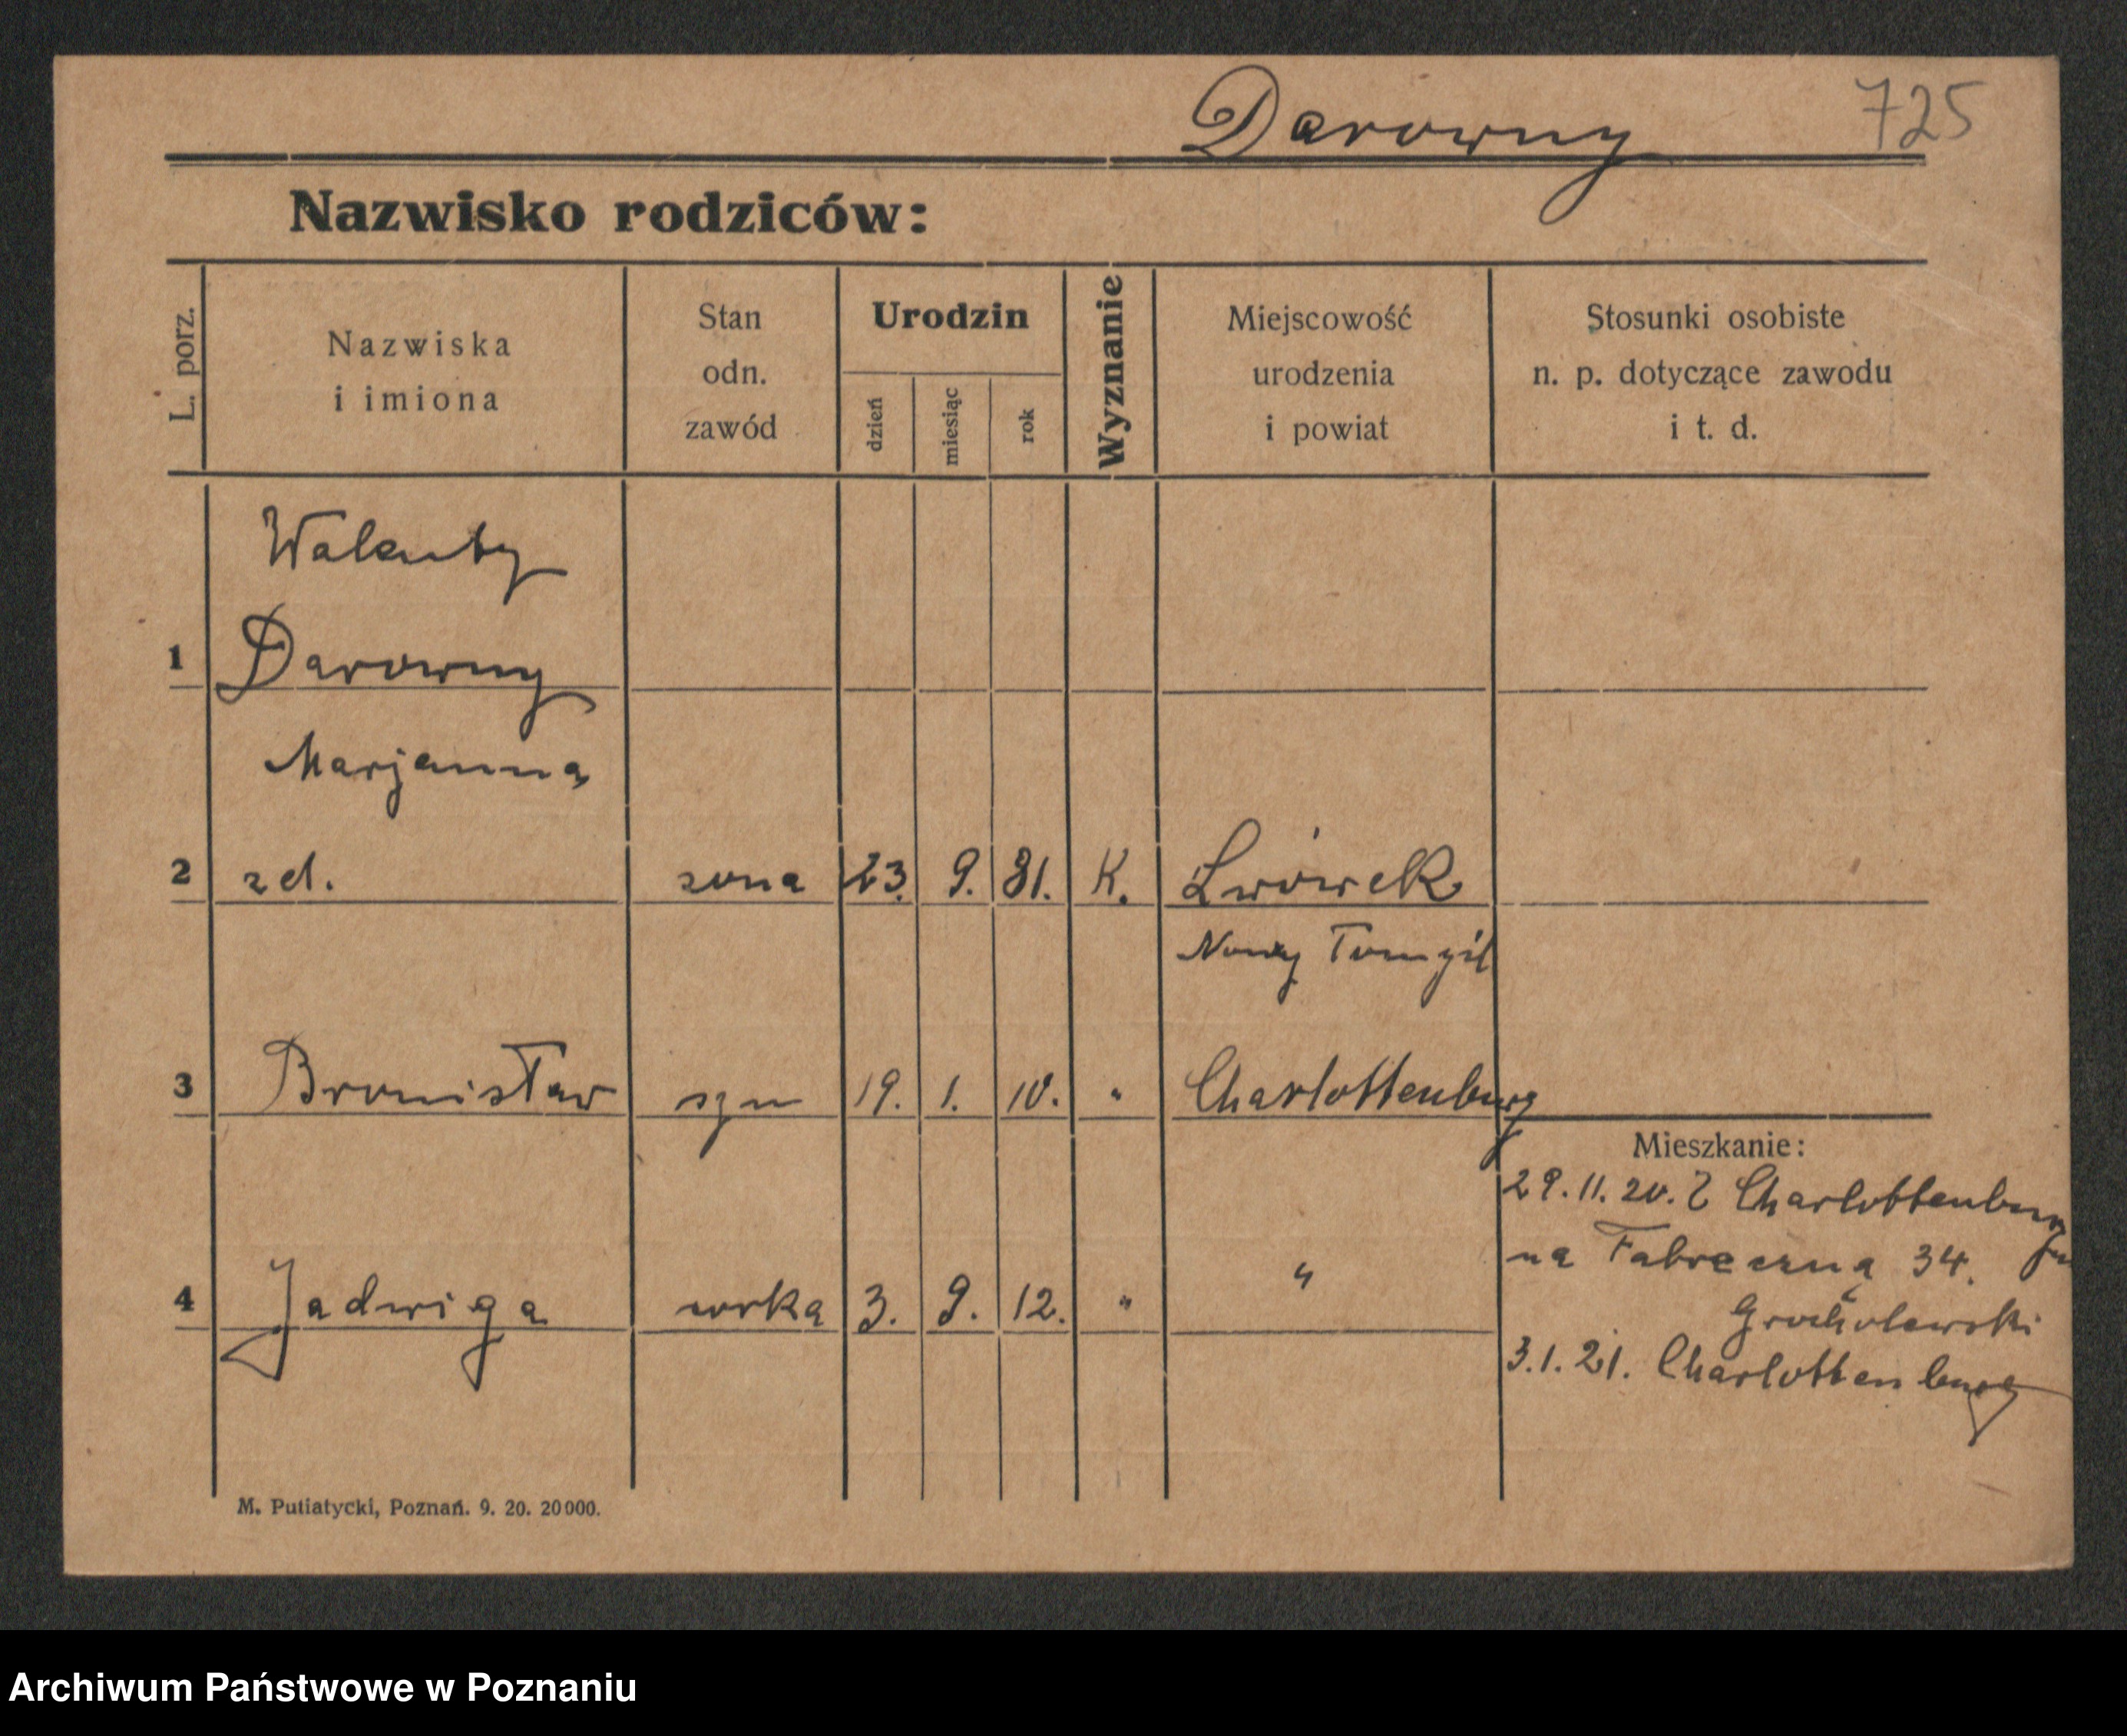 Darowny 725
Nazwisko rodziców:
L. porz.
Nazwiska
i imiona
Stan
odn.
zawód
Urodzin
dzień
miesiąc
rok
Wyznanie
Miejscowość
urodzenia
i powiat
Stosunki osobiste
n. p. dotyczące zawodu
i t. d.
Walenty
1 Darowny
Marjanna
2 zd. zona 23. 9. 81. K. Lwówek
Nowy Tomyśl
3 Bronisław syn 19. 1. 10. " Charlottenburg
Mieszkanie:
29.11.20. Z Charlottenburg
na Fabreczną 34.
4 Jadwiga wrka 3. 9. 12. " "
Grocholewski
3.1.21. Charlottenburg
M. Putiatycki, Poznań. 9. 20. 20000.
Archiwum Państwowe w Poznaniu